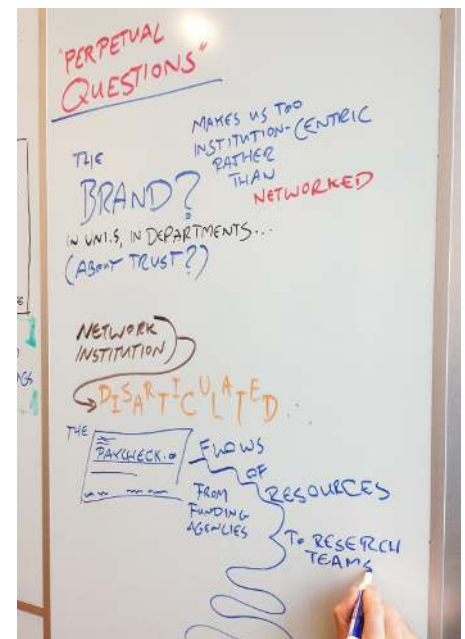 "PERPETUAL
QUESTIONS"
MAKES US TOO
INSTITUTION-CENTRIC
RATHER
THAN
NETWORKED
THE
BRAND?
IN UNI.S, IN DEPARTMENTS...
(ABOUT TRUST?)
NETWORK
INSTITUTION
DISARTICULATED...
THE
PAYCHECK.
FLOWS
OF
RESOURCES
FROM
FUNDING
AGENCIES
TO RESERCH
TEAMS